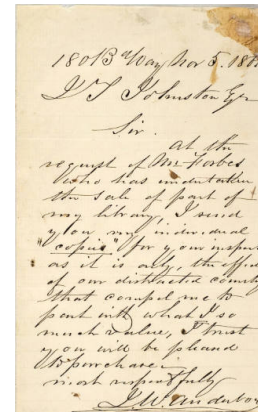 180 B Way Nov 5. 186
J T Johnston Esqr
Sir.
At the
request of Mr Forbes
who has undertaken
the sale of part of
my library, I send
you my individual
"copies" for your inspec
as it is only, the effect
of our distracted country
that compel me to
part with what I so
much value, I trust
you will be pleased
to purchase
most respectfully
J. W.